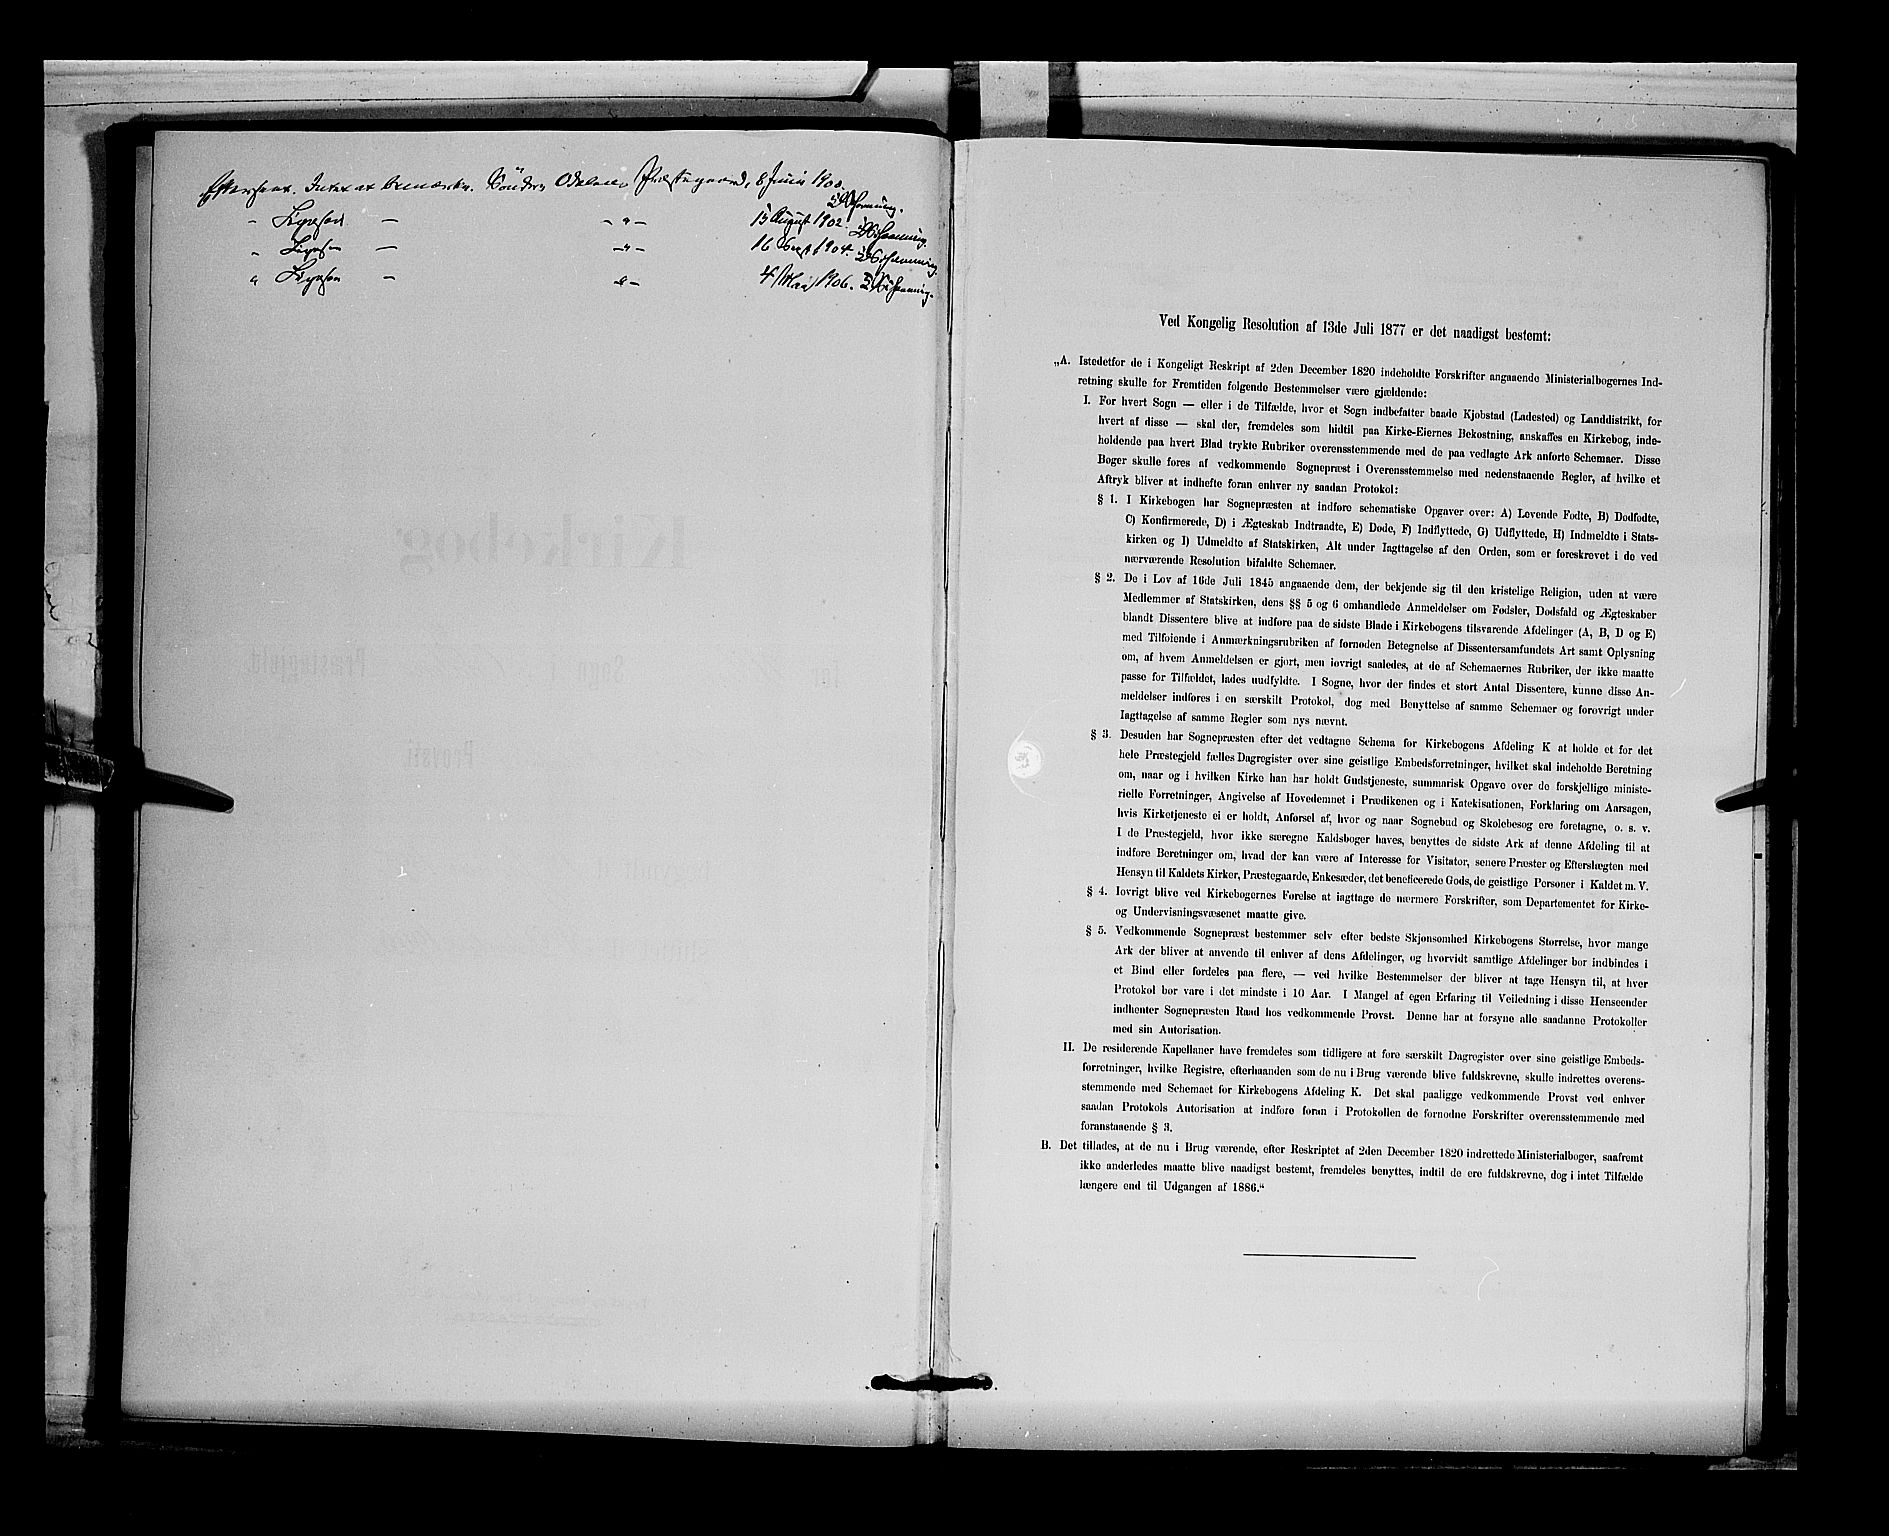 Efterseet. Intet at bemærke. Söndre Odalens Præstegaard, 8 Juni 1900.
" Ligesaa — — " — 15 August 1902.
" Ligesaa — — " — 16 Sept 1904.
" Ligesaa — " — 4 Mai 1906.
Kirkebog
for Sogn i Præstegjeld
Provsti
Ved Kongelig Resolution af 13de Juli 1877 er det naadigst bestemt:
„A. Istedetfor de i Kongeligt Reskript af 2den December 1820 indeholdte Forskrifter angaaende Ministerialbogernes Ind-
retning skulle for Fremtiden folgende Bestemmelser være gjældende:
I. For hvert Sogn — eller i de Tilfælde, hvor et Sogn indbefatter baade Kjobstad (Ladested) og Landdistrikt, for
hvert af disse — skal der, fremdeles som hidtil paa Kirke-Eiernes Bekostning, anskaffes en Kirkebog, inde-
holdende paa hvert Blad trykte Rubriker overensstemmende med de paa vedlagte Ark anforte Schemaer. Disse
Boger skulle fores af vedkommende Sognepræst i Overensstemmelse med nedenstaaende Regler, af hvilke et
Aftryk bliver at indhefte foran enhver ny saadan Protokol:
§ 1. I Kirkebogen har Sognepræsten at indfore schematiske Opgaver over: A) Levende Fodte, B) Dodfodte,
C) Konfirmerede, D) i Ægteskab Indtraadte, E) Dode, F) Indflyttede, G) Udflyttede, H) Indmeldte i Stats-
kirken og I) Udmeldte af Statskirken, Alt under Iagttagelse af den Orden, som er foreskrevet i de ved
nærværende Resolution bifaldte Schemaer.
§ 2. De i Lov af 16de Juli 1845 angaaende dem, der bekjende sig til den kristelige Religion, uden at være
Medlemmer af Statskirken, dens §§ 5 og 6 omhandlede Anmeldelser om Fodsler, Dodsfald og Ægteskaber
blandt Dissentere blive at indfore paa de sidste Blade i Kirkebogens tilsvarende Afdelinger (A, B, D og E)
med Tilfoiende i Anmærkningsrubriken af fornoden Betegnelse af Dissentersamfundets Art samt Oplysning
om, af hvem Anmeldelsen er gjort, men iovrigt saaledes, at de af Schemaernes Rubriker, der ikke maatte
passe for Tilfældet, lades uudfyldte. I Sogne, hvor der findes et stort Antal Dissentere, kunne disse An-
meldelser indfores i en særskilt Protokol, dog med Benyttelse af samme Schemaer og forovrigt under
Iagttagelse af samme Regler som nys nævnt.
§ 3. Desuden har Sognepræsten efter det vedtagne Schema for Kirkebogens Afdeling K at holde et for det
hele Præstegjeld fælles Dagregister over sine geistlige Embedsforretninger, hvilket skal indeholde Beretning
om, naar og i hvilken Kirke han har holdt Gudstjeneste, summarisk Opgave over de forskjellige ministe-
rielle Forretninger, Angivelse af Hovedemnet i Prædikenen og i Katekisationen, Forklaring om Aarsagen,
hvis Kirketjeneste ei er holdt, Anforsel af, hvor og naar Sognebud og Skolebesog ere foretagne, o. s. v.
I de Præstegjeld, hvor ikke særegne Kaldsboger haves, benyttes de sidste Ark af denne Afdeling til at
indfore Beretninger om, hvad der kan være af Interesse for Visitator, senere Præster og Efterslægten med
Hensyn til Kaldets Kirker, Præstegaarde, Enkesæder, det beneficerede Gods, de geistlige Personer i Kaldet m. V.
§ 4. Iovrigt blive ved Kirkebogernes Forelse at iagttage de nærmere Forskrifter, som Departementet for Kirke-
og Undervisningsvæsenet maatte give.
§ 5. Vedkommende Sognepræst bestemmer selv efter bedste Skjonsomhed Kirkebogens Storrelse, hvor mange
Ark der bliver at anvende til enhver af dens Afdelinger, og hvorvidt samtlige Afdelinger bor indbindes i
et Bind eller fordeles paa flere, — ved hvilke Bestemmelser der bliver at tage Hensyn til, at hver
Protokol bor vare i det mindste i 10 Aar. I Mangel af egen Erfaring til Veiledning i disse Henseender
indhenter Sognepræsten Raad hos vedkommende Provst. Denne har at forsyne alle saadanne Protokoller
med sin Autorisation.
II. De residerende Kapellaner have fremdeles som tidligere at fore særskilt Dagregister over sine geistlige Embeds-
forretninger, hvilke Registre, efterhaanden som de nu i Brug værende blive fuldskrevne, skulle indrettes overens-
stemmende med Schemaet for Kirkebogens Afdeling K. Det skal paaligge vedkommende Provst ved enhver
saadan Protokols Autorisation at indfore foran i Protokollen de fornodne Forskrifter overensstemmende med
foranstaaende § 3.
B. Det tillades, at de nu i Brug værende, efter Reskriptet af 2den December 1820 indrettede Ministerialboger, saafremt
ikke anderledes maatte blive naadigst bestemt, fremdeles benyttes, indtil de ere fuldskrevne, dog i intet Tilfælde
længere end til Udgangen af 1886.“